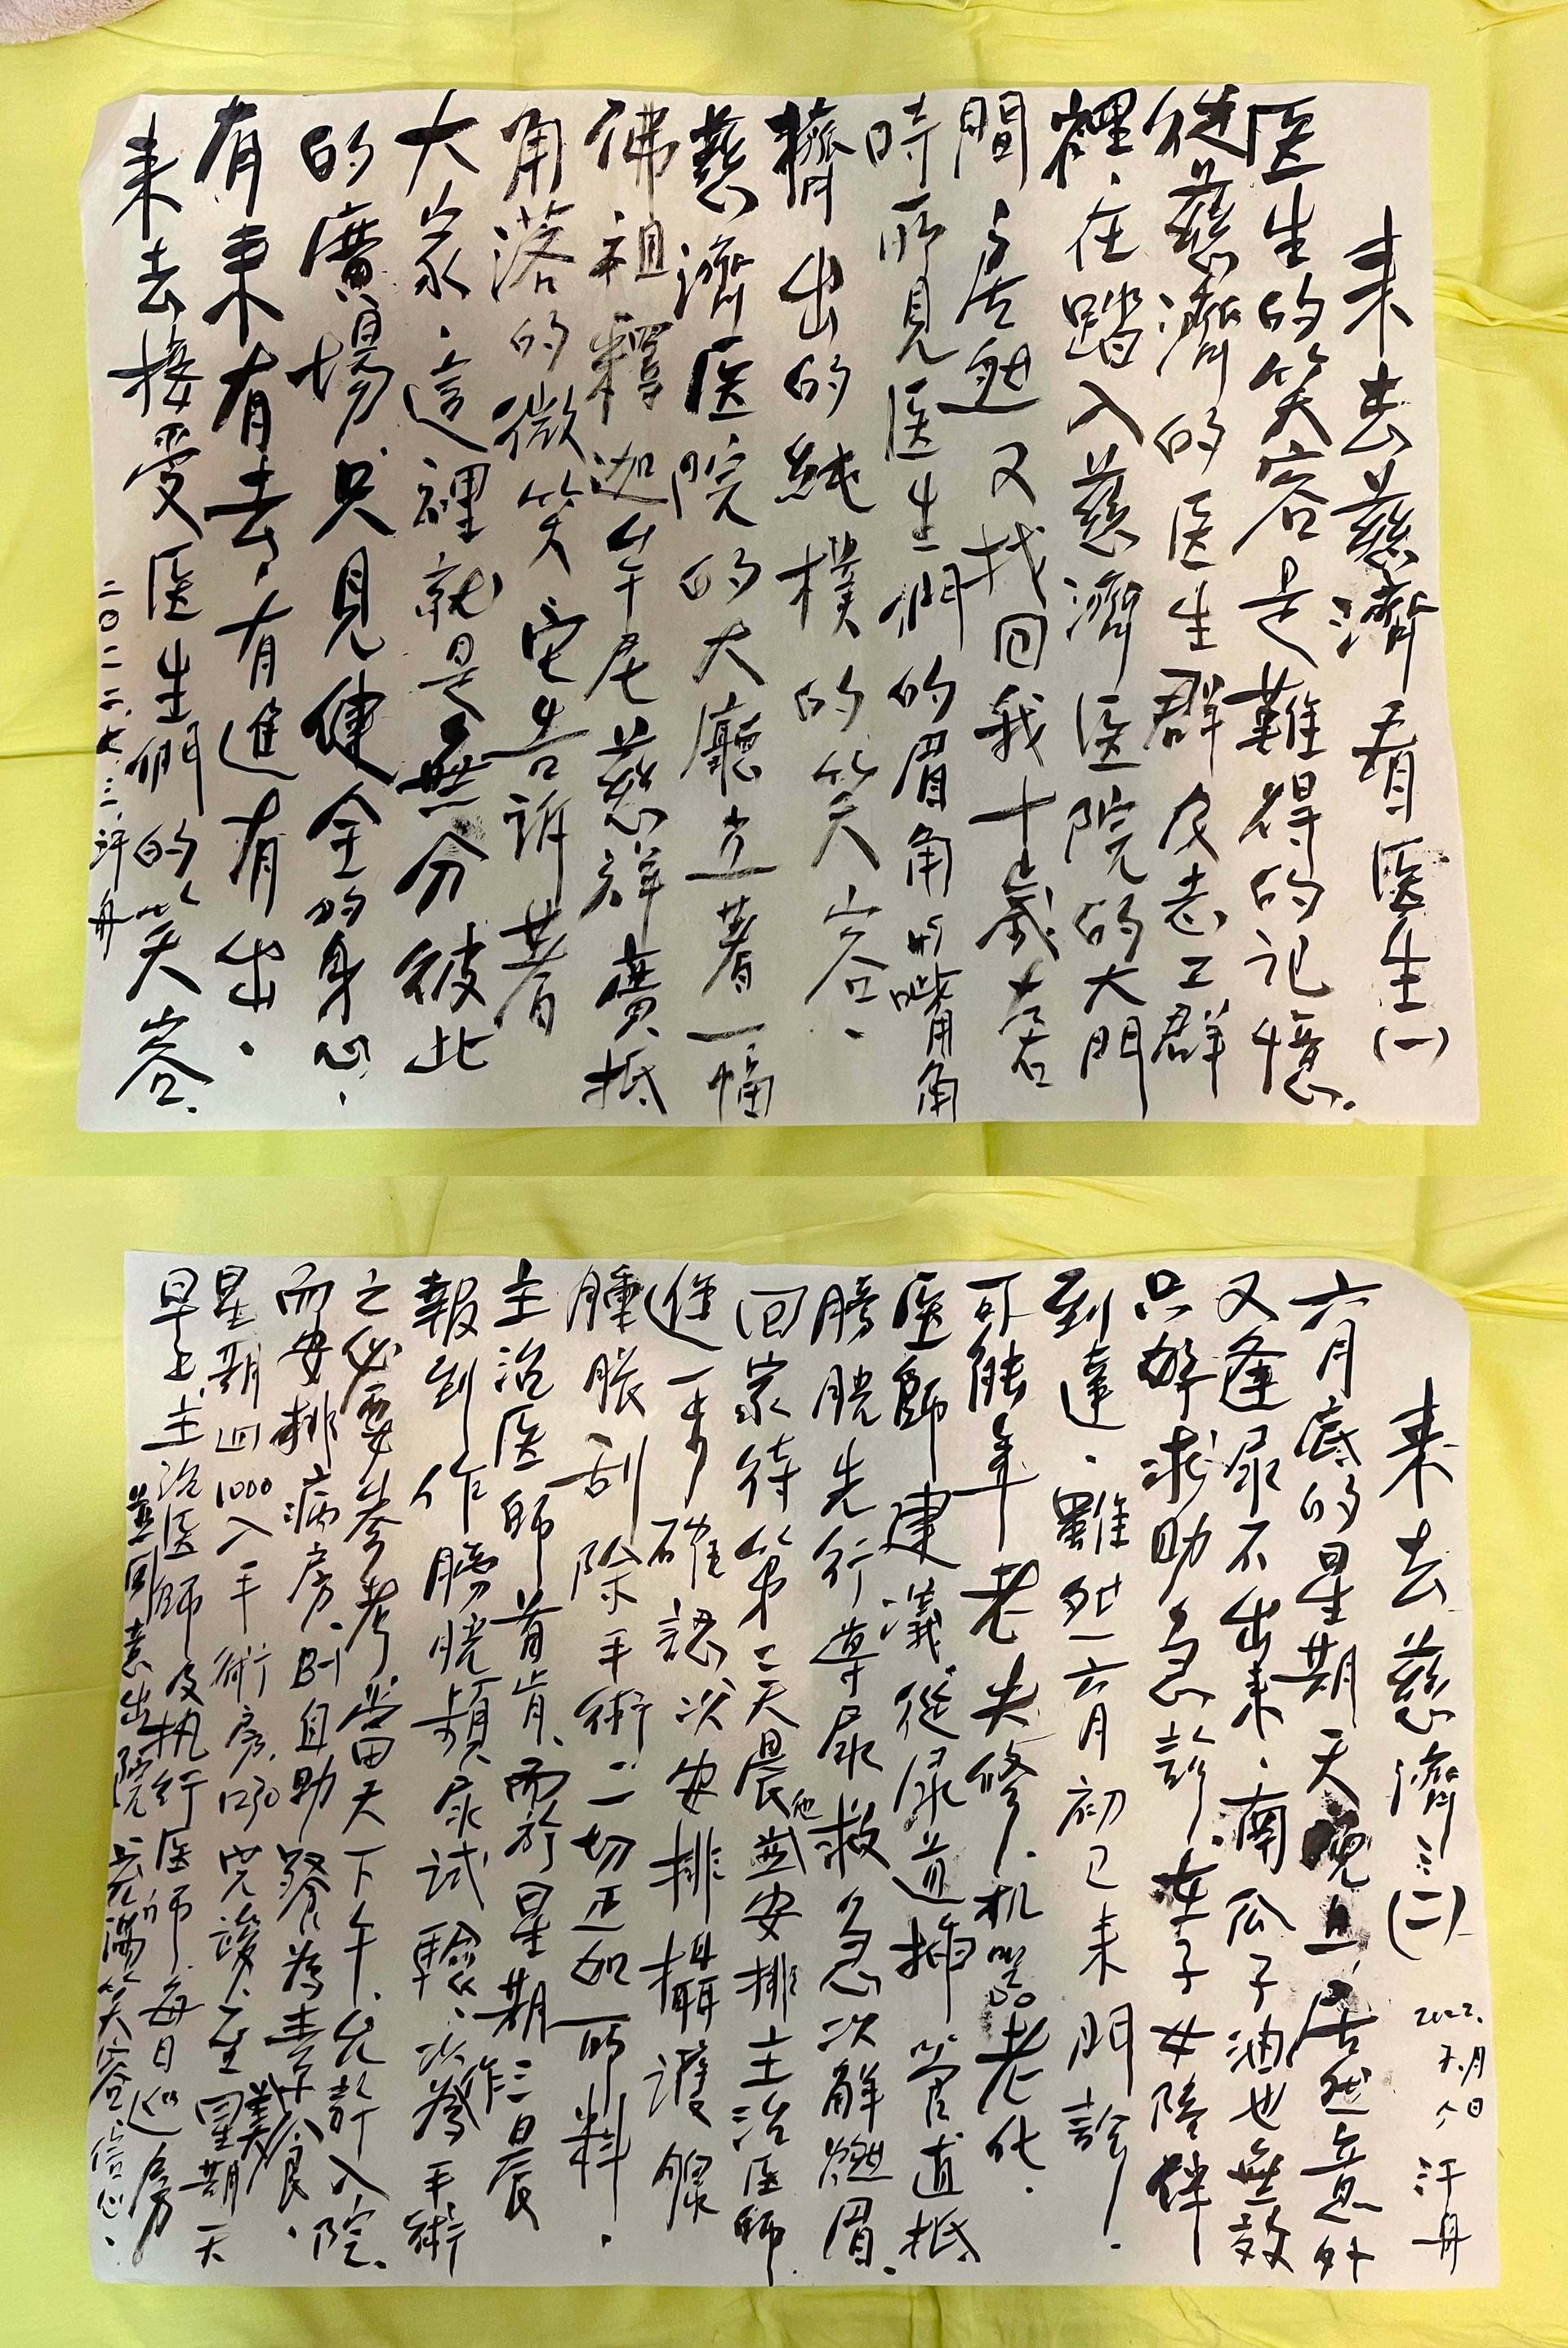 来去慈濟看医生(一)
医生的笑容是難得的记憶.
從慈濟的医生群及志工群
裡.在踏入慈濟医院的大門
間.居然又找回我十歲左右
時所見医生們的眉角嘴角
擠出的純樸的笑容.
慈濟医院的大廳立著一幅
佛祖釋迦牟尼慈祥廣抵
角落的微笑.它告訴著
大家.這裡就是無分彼此
的廣場.只見健全的身心.
有来有去.有進有出.
来去接受医生們的笑容.
二〇二二.七.三.汗舟
来去慈濟(二)
2022.7.月 日 汗舟
六月底的星期天晚上,居然意外
又逢尿不出来.南瓜子油也無效
只好求助急診.妻子女陪伴
到達.雖然六月初已来門診.
可能年老失修.机器老化.
医師建議從尿道插管直抵
膀胱先行導尿救急次解燃眉.
回家待第二天晨他並安排主治医師
進一步確認次安排攝護腺
腫脹刮除手術.一切正如所料.
主治医師首肯.而於星期三日晨
報到作膀胱頻尿試驗.次為作手術
之必要參考.當天下午.允許入院.
而安排病房.B1自助餐為素食.
星期四1000入手術房.1230完竣.至星期天
早上.主治医師及执行医師.每日巡房
並同意出院.充滿笑容信心.